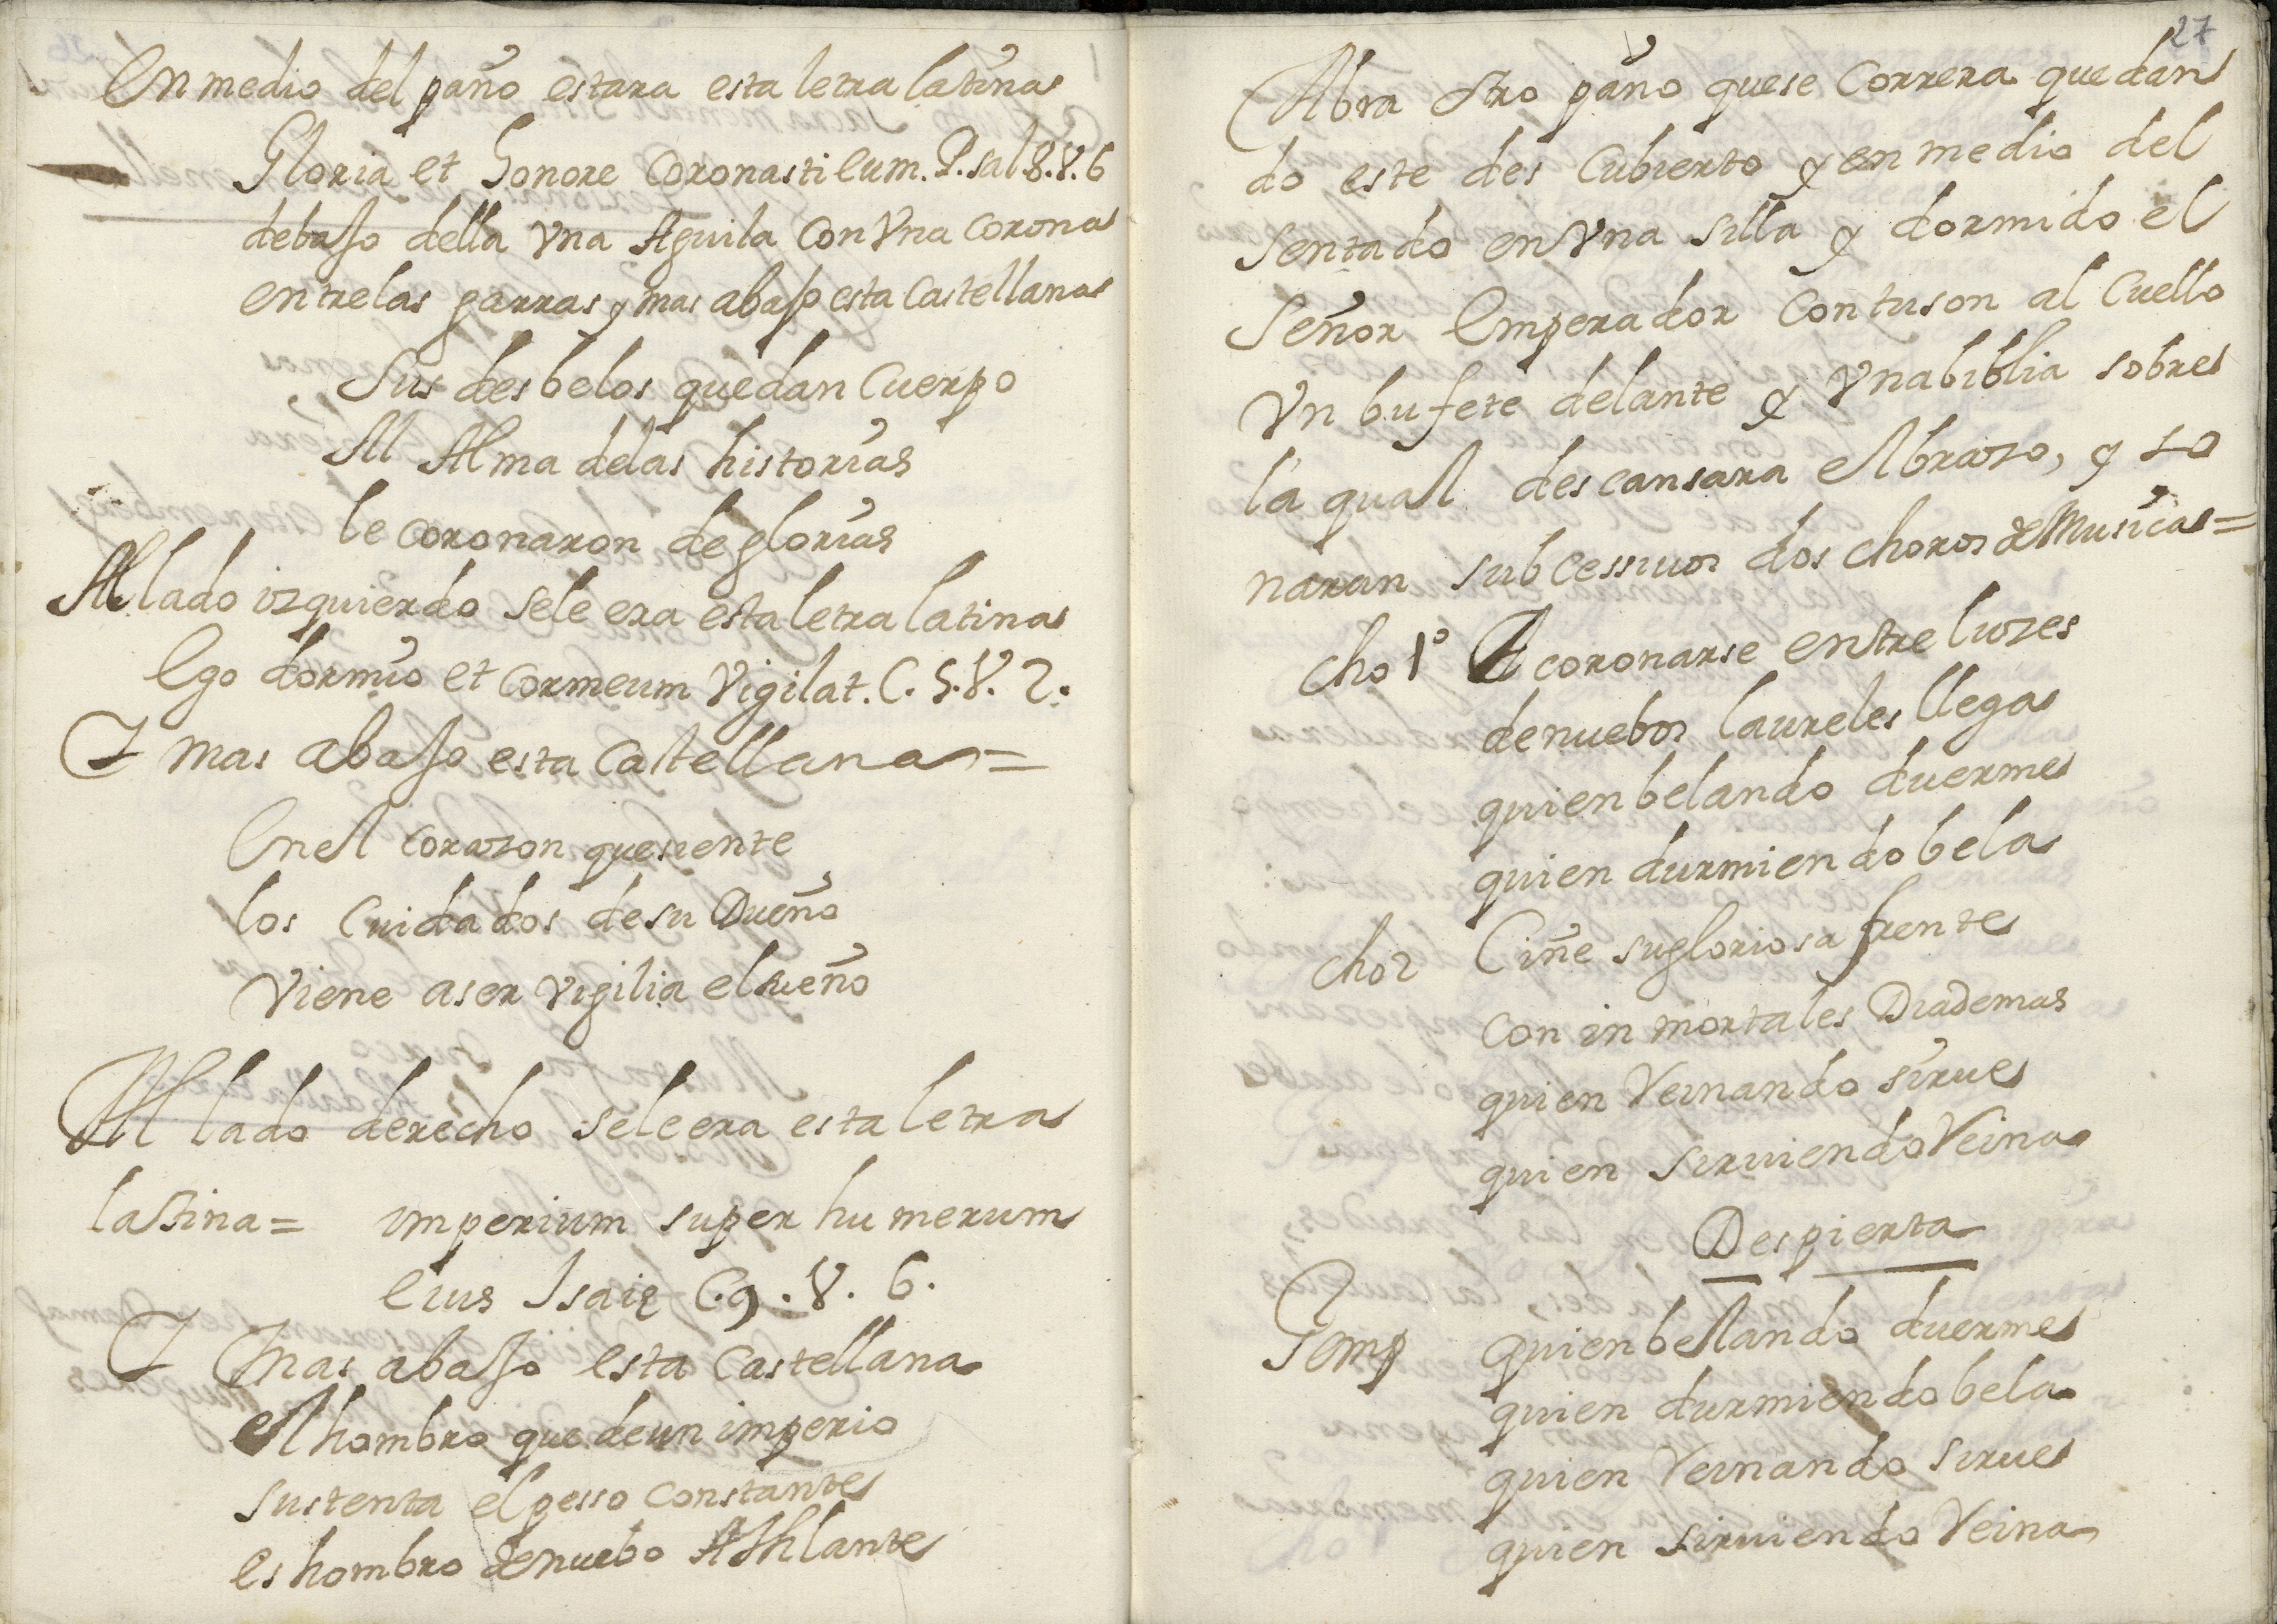 En medio del paño estara esta letra latina
Gloria et Honore coronasti eum. P.sal.8.V.6
debajo della Vna Aguila con Vna corona
entre las garras y mas abajo esta castellana
Sus desbelos quedan cuerpo
Al Alma de las historias
le coronaron de glorias
Al lado izquierdo se leera esta letra latina
Ego dormio et cor meum Vigilat. C. 5. V. 2.
I mas abajo esta castellana =
En el corazon que siente
los cuidados de su Dueño
Viene a ser Vigilia el sueño
Al lado derecho se leera esta letra
latina = imperium super humerum
eius Isaię C. 9. V. 6.
I mas abajo esta castellana
el hombro que de un imperio
sustenta el pesso constante
es hombro de nuebo Athlante
27
Abra otro paño que se correra quedan
do este des cubierto y en medio del
sentado en Vna silla y dormido el
Señor Emperador con tuson al cuello
Vn bufete delante y Vna biblia sobre
la qual descansara el brazo, y so
naran subcessiuos dos choros de Musica =
cho 1º A coronarse entre luzes
de nuebos laureles llega
quien belando duerme
quien durmiendo bela
cho 2 Ciñe su gloriosa frente
con in mortales Diademas
quien Reinando sirue
quien siruiendo Reina
Despierta
Emp quien belando duerme
quien durmiendo bela
quien Reinando sirue
quien siruiendo Reina